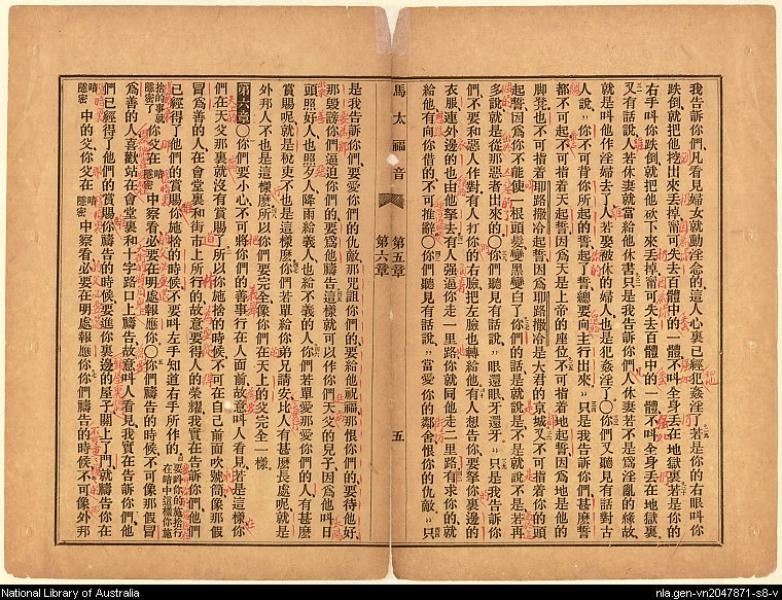 我告訴你們、凡看見婦女就動淫念的、這人心裏已經犯姦淫了、若是你的右眼叫你
跌倒、就把他挖出來丟掉、甯可失去百體中的一體、不叫全身丟在地獄裏、若是你的
右手叫你跌倒、就把他砍下來丟掉、甯可失去百體中的一體、不叫全身丟在地獄裏
又有話說、人若休妻、就當給他休書、只是我告訴你們、人休妻若不是爲淫亂的緣故、
就是叫他作淫婦去了、人若娶被休的婦人、也是犯姦淫了〇你們又聽見有話對古
人說、你不可背你所起的誓、起了誓總要向主行出來、只是我告訴你們、甚麼誓
都不可起、不可指着天起誓、因爲天是上帝的座位、不可指着地起誓、因爲地是他的
脚凳、也不可指着耶路撒冷起誓、因爲耶路撒冷是大君的京城、又不可指着你的頭
起誓、因爲你不能使一根頭髮變黑變白了、你們的話、是就說是、不是就說不是、若再
多說、就是從那惡者出來的〇你們聽見有話說、眼還眼、牙還牙、只是我告訴你
們、不要和惡人作對、有人打你的右臉、把左臉也轉給他、有人想告你、要拏你裏邊的
衣服、連外邊的也由他拏去、有人强逼你走一里路、你就同他走二里路、有求你的、就
給他、有向你借的、不可推辭〇你們聽見有話說、當愛你的鄰舍、恨你的仇敵、只
馬太福音 第五章 第六章 五
是我告訴你們、要愛你們的仇敵、那咒詛你們的、要給他祝福、那恨你們的、要待他好、
那毀謗你們逼迫你們的、要爲他禱告、這樣就可以作你們天父的兒子、因爲他叫日
頭照好人、也照歹人、降雨給義人、也給不義的人、你們若單愛那愛你們的人、有甚麼
賞賜呢、就是稅吏不也是這樣麼、你們若單給你弟兄請安、比人有甚麼長處呢、就是
外邦人不也是這樣麼、所以你們要完全、像你們在天上的父完全一樣、
第六章〇你們要小心、不可將你們的善事行在人面前、故意叫人看見、若是這樣、你
們在天父那裏就沒有賞賜了、所以你施捨的時候、不可在自己前面吹號筒、像那
冒爲善的人、在會堂裏和街市上所行的、故意要得人的榮耀、我實在告訴你們、他們
已經得了他們的賞賜、你施捨的時候、不要叫左手知道右手所作的、要叫你的施捨行在暗中、這樣你施
捨的事就隱密了、你父在暗隱密中察看、必要在明處報應你〇你們禱告的時候、不可像那假冒
爲善的人、喜歡站在會堂裏和十字路口上禱告、故意叫人看見、我實在告訴你們、他
們已經得了他們的賞賜、你禱告的時候、要進你裏邊的屋子、關上了門、就禱告你在
暗隱密中的父、你父在暗隱密中察看、必要在明處報應你、你們禱告的時候、不可像外邦
National Library of Australia
nla.gen-vn2047871-s8-v